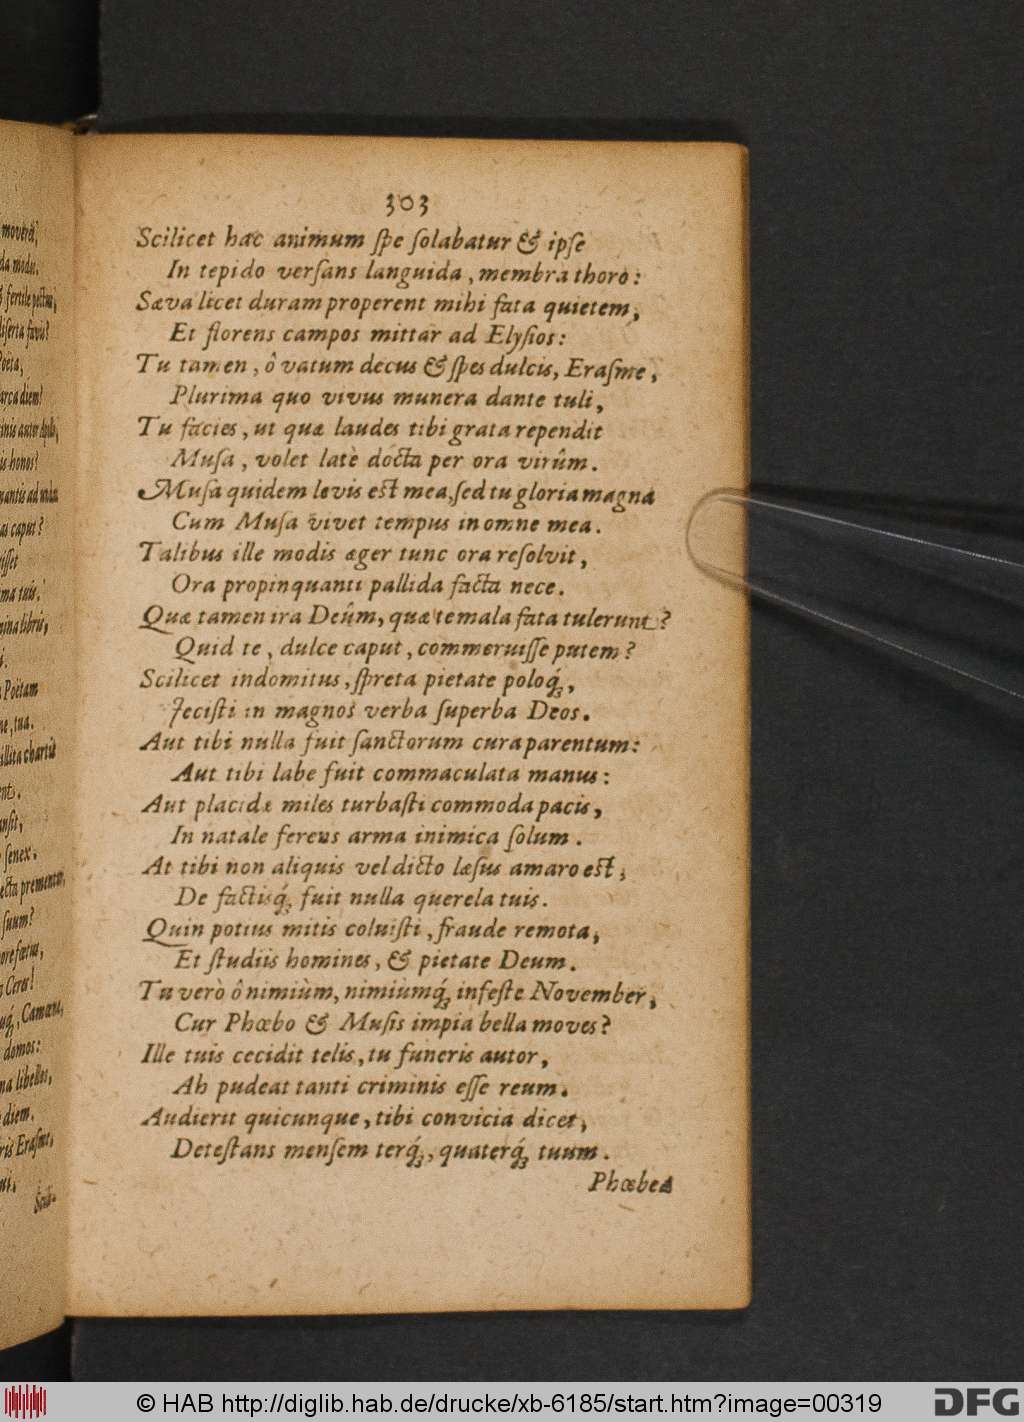 303
Scilicet hac animum spe solabatur & ipse
In tepido versans languida, membra thoro:
Sæva licet duram properent mihi fata quietem,
Et florens campos mittar ad Elysios:
Tu tamen, ô vatum decus & spes dulcis, Erasme,
Plurima quo vivus munera dante tuli,
Tu facies, ut quæ laudes tibi grata rependit
Musa, volet latè docta per ora virûm.
Musa quidem levis est mea, sed tu gloria magna
Cum Musa vivet tempus in omne mea.
Talibus ille modis æger tunc ora resolvit,
Ora propinquanti pallida facta nece.
Quæ tamen ira Deûm, quæ te mala fata tulerunt?
Quid te, dulce caput, commeruisse putem?
Scilicet indomitus, spreta pietate poloq́;,
Jecisti in magnos verba superba Deos.
Aut tibi nulla fuit sanctorum cura parentum:
Aut tibi labe fuit commaculata manus:
Aut placidæ miles turbasti commoda pacis,
In natale ferens arma inimica solum.
At tibi non aliquis vel dicto læsus amaro est,
De factisq́; fuit nulla querela tuis.
Quin potius mitis coluisti, fraude remota,
Et studiis homines, & pietate Deum.
Tu verò ô nimiùm, nimiumq́; infeste November,
Cur Phœbo & Musis impia bella moves?
Ille tuis cecidit telis, tu funeris autor,
Ah pudeat tanti criminis esse reum.
Audierit quicunque, tibi convicia dicet,
Detestans mensem terq́;, quaterq́; tuum.
Phœbea
© HAB http://diglib.hab.de/drucke/xb-6185/start.htm?image=00319
DFG